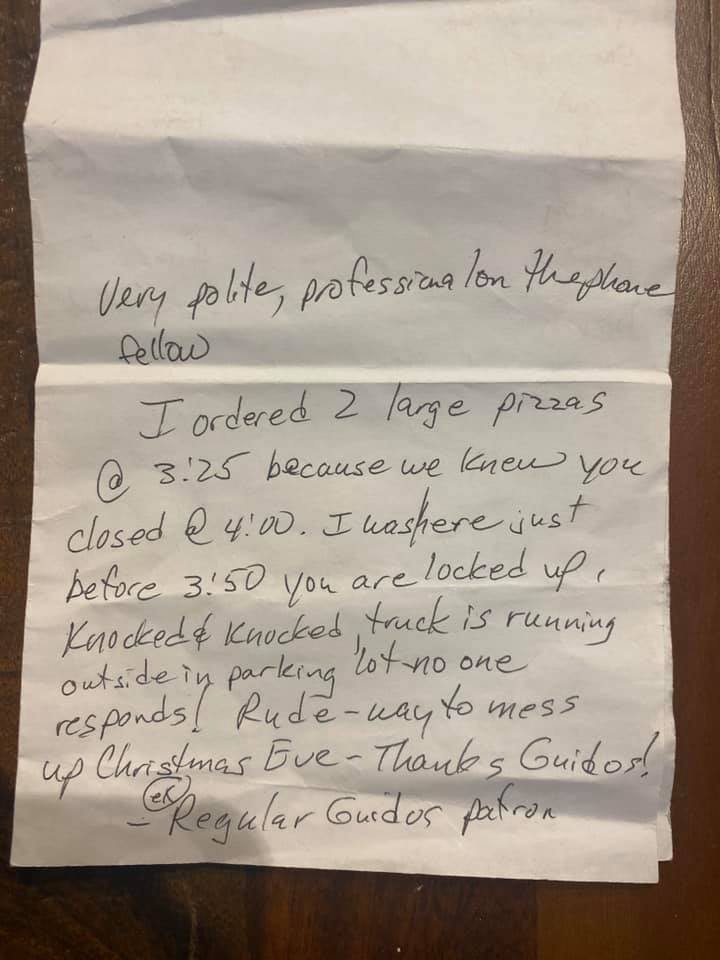 Very polite, professional on the phone
fellow
I ordered 2 large pizzas
@ 3:25 because we knew you
closed @ 4:00. I was here just
before 3:50 you are locked up,
Knocked & Knocked, truck is running
outside in parking lot-no one
responds! Rude-way to mess
up Christmas Eve-Thanks Guidos!
(ex)
- Regular Guidos patron